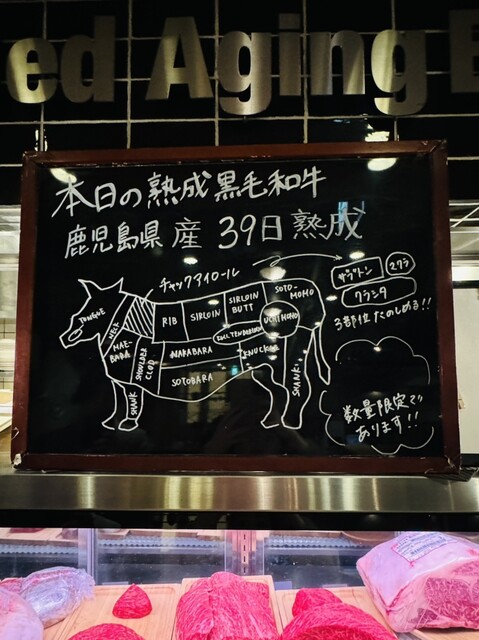 ed Aging B
本日の熟成黒毛和牛
鹿児島県産 39日熟成
チャックアイロール
ザブトン
マクラ
クラシタ
3部位たのしめる!!
TONGUE
NECK
MAE-
BARA
SHOULDER
CLOD
SHANK
RIB
SIRLOIN
SIRLOIN
BUTT
SOTO-
MOMO
UCHIMOMO
FULL TENDERLOIN
NAKABARA
KNUCKLE
SOTOBARA
SHANK
数量限定で
あります!!